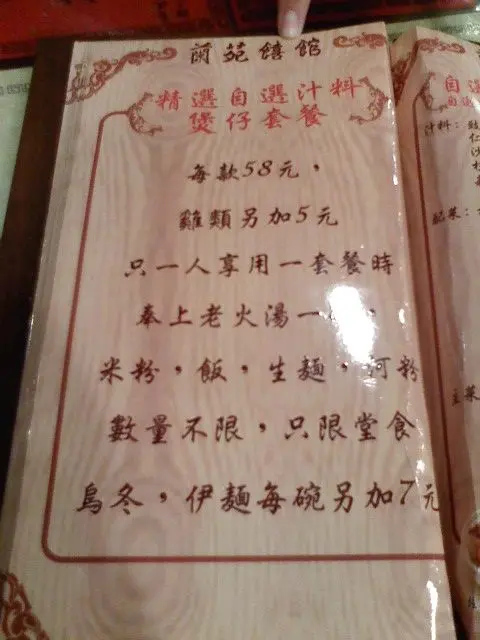 蘭苑饎館
精選自選汁料
煲仔套餐
每款58元，
雞類另加5元
只一人享用一套餐時
奉上老火湯一
米粉，飯，生麵，河粉
數量不限，只限堂食
烏冬，伊麵每碗另加7元
自選
汁料：
配菜：
主菜